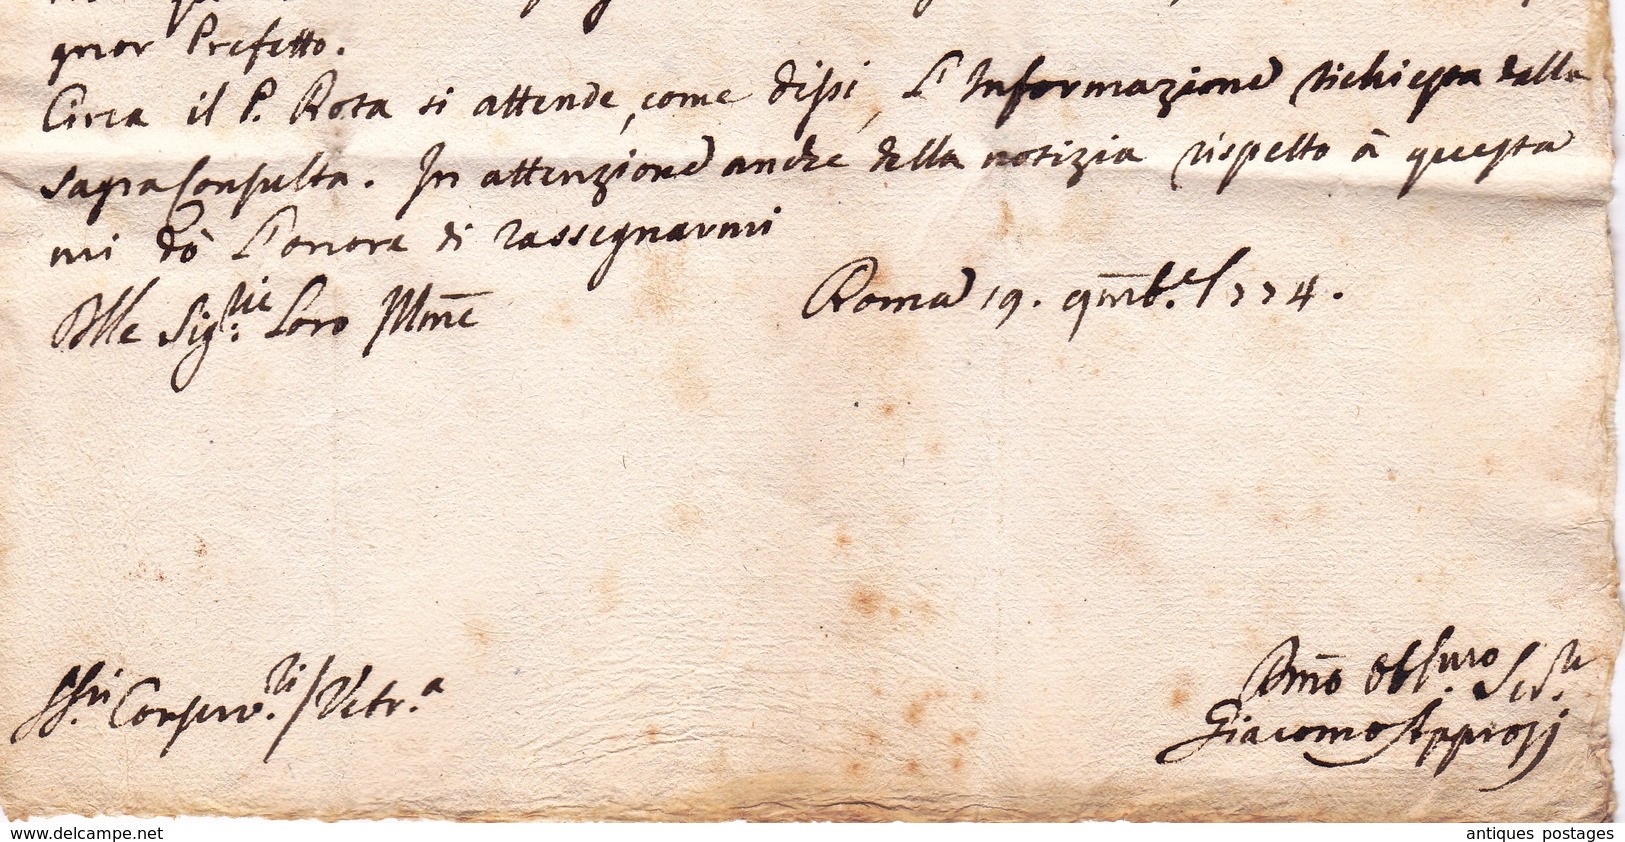 gnor Prefetto.
Circa il P. Rota si attende, come dissi, l'Informazione richiesta dalla
Sagra Consulta. In attenzione anche della notizia rispetto à questa
mi dò l'onore di rassegnarmi
Alle Sig.rie Loro Illme
Roma 19. 9mb.e 1774.
SS.ri Conserv.ri / Vetr.a
Dmo Obb.mo Ser.re
Giacomo Approsj
www.delcampe.net
antiques postages